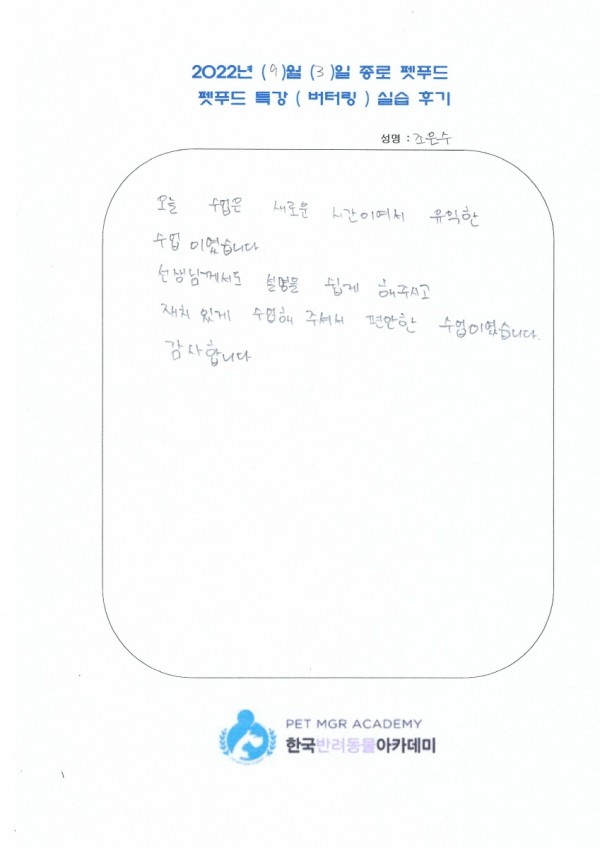 2022년 (9)월 (3)일 종로 펫푸드
펫푸드 특강 ( 버터링 ) 실습 후기
성명 : 조은수
오늘 수업은 새로운 시간이여서 유익한
수업 이였습니다
선생님께서도 설명을 쉽게 해주시고
재치 있게 수업해 주셔서 편안한 수업이였습니다.
감사합니다
PET MGR ACADEMY
한국반려동물아카데미